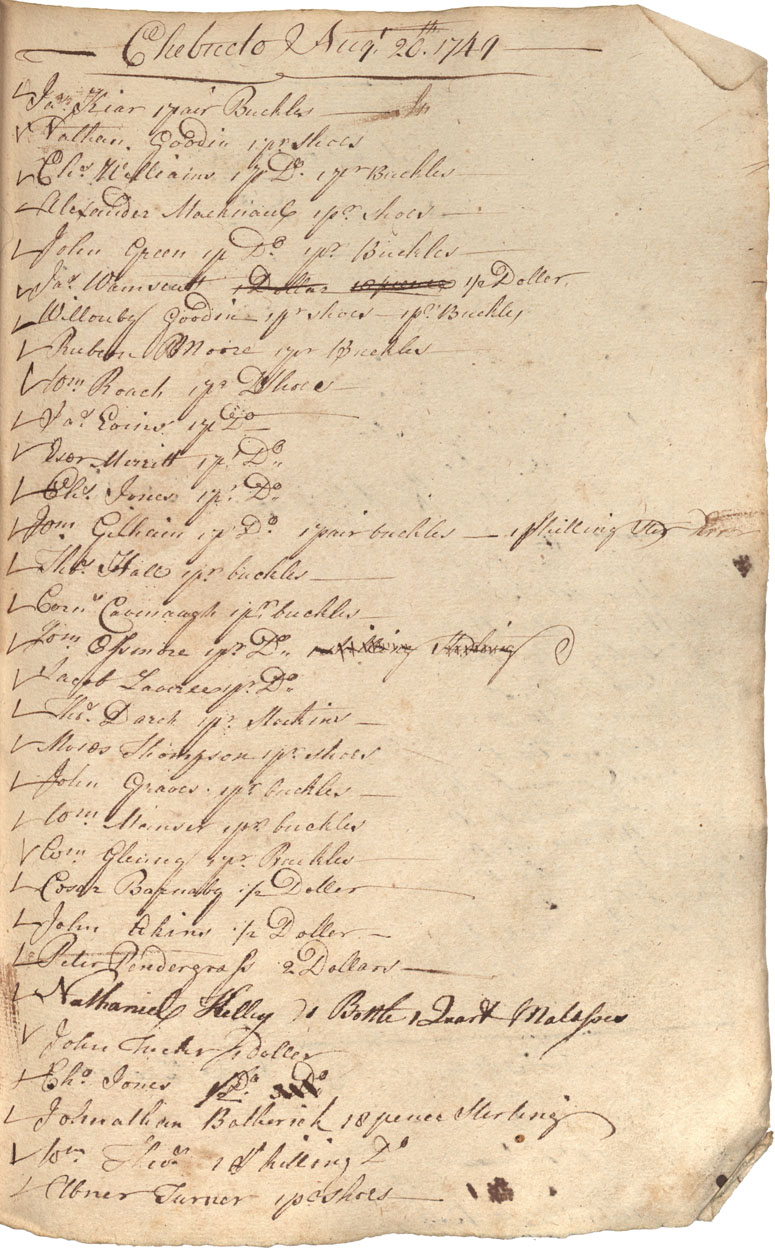 Chebucto Augt. 26th. 1749
Jas. Kiar 1 pair Buckles
Nathan Goodin 1 pr shoes
Chs. Williams 1 p Do. 1 pr Buckles
Alexander 1 pr shoes
John Green 1 p Do 1 pr. Buckles
Jas. Wamscutt 1 Dollar 18 pence 1/2 Doller.
Willouby Goodin 1 pr shoes 1 pr. Buckles
Rubern Moore 1 pr Buckles
Wm Roach 1 pr Shoes
Jas. 1 p Do
Merritt 1 pr Do
Chs. Jones 1 pr. Do.
Jom. Gilham 1 pr Do. 1 pair buckles 1 Shilling Ster
Thos. Hall 1 pr buckles
Corns. Cavenaugh 1 pr buckles
Wm 1 pr. Do. Shilling Sterling
Jacob 1 pr. Do.
Thos. Darch 1 pr. Stockins
Moses Thompson 1 pr shoes
John Graves 1 pr buckles
Wm. 1 pr buckles
Wm. 1 pr. Buckles
Cesar Barnaby 1/2 Doller
John Akins 1/2 Doller
Peter Pendergrass 2 Dollars
Nathaniel Kelley 1 Bottle 1 Quart Malasses
John Tucker 1 Doller
Chs. Jones 1/2 Do. Do
Johnathan Batherick 18 pence Sterling
Wm Thos. 1 Shilling Do
Abner Turner 1 pr shoes